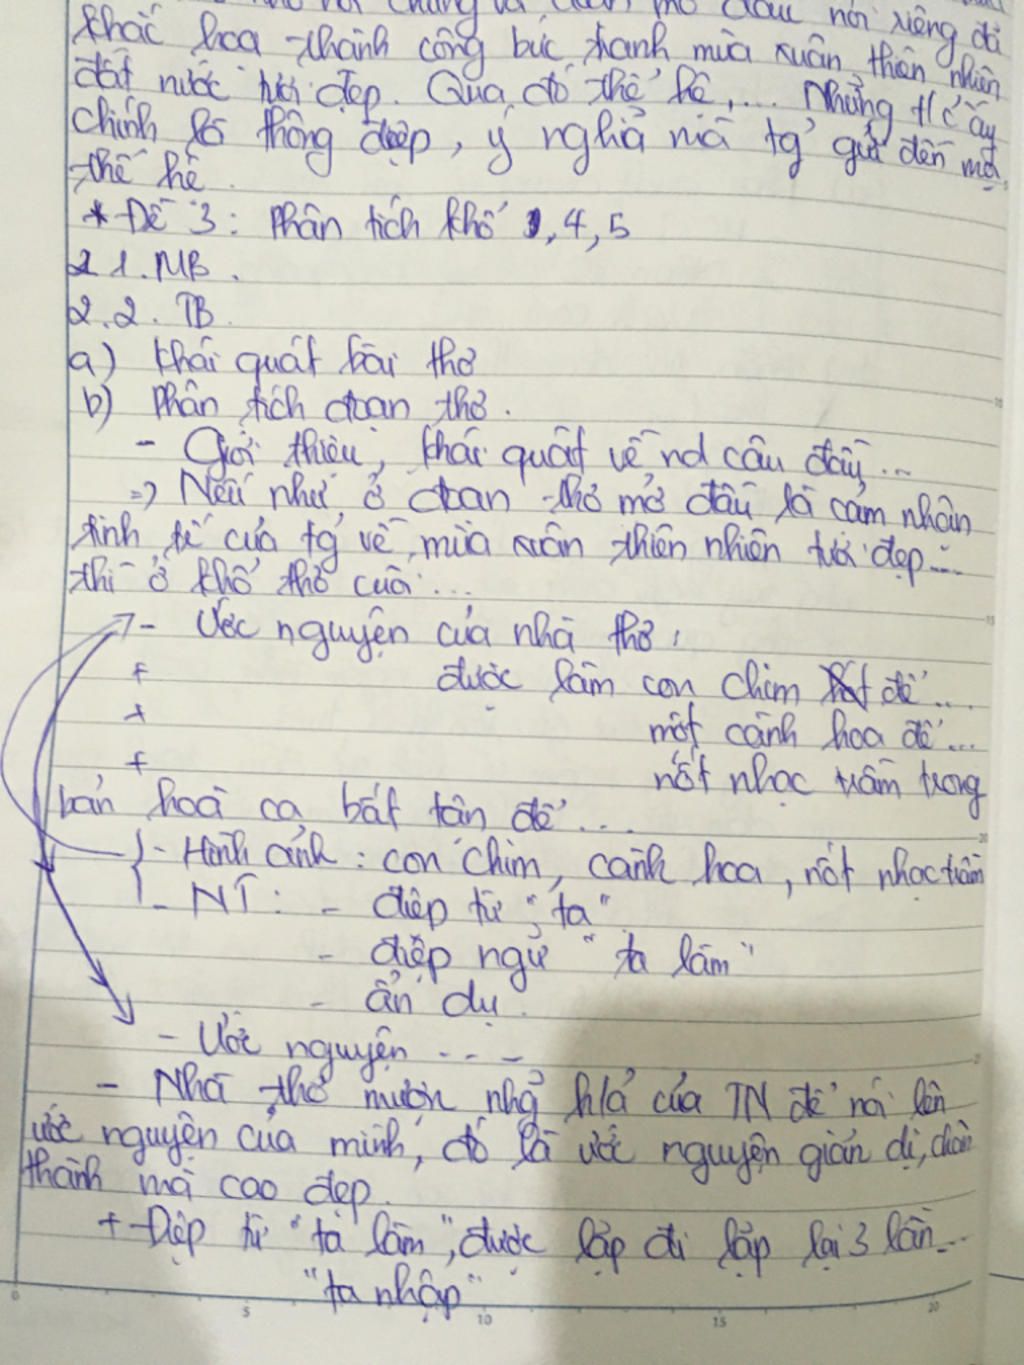 khắc họa thành công bức tranh mùa xuân thiên nhiên
đất nước tươi đẹp. Qua đó thế hệ,... Những t/c ấy
chính là thông điệp, ý nghĩa mà tg gửi đến mọi
thế hệ.
* Đề 3: Phân tích khổ 1, 4, 5
2 1. MB.
2.2. TB.
a) Khái quát bài thơ
b) Phân tích đoạn thơ.
- Giới thiệu, khái quát về nd câu đầu...
=> Nếu như ở đoạn thơ mở đầu là cảm nhận
tinh tế của tg về mùa xuân thiên nhiên tươi đẹp...
thì ở khổ thơ cuối...
- Ước nguyện của nhà thơ:
+ được làm con chim hót để...
+ một cành hoa để...
+ nốt nhạc trầm trong
bản hoà ca bất tận để...
- Hình ảnh: con chim, cành hoa, nốt nhạc trầm
- NT: - điệp từ "ta"
- điệp ngữ "ta làm"
- ẩn dụ.
- Ước nguyện ...
- Nhà thơ mượn h/ả của TN để nói lên
ước nguyện của mình, đó là ước nguyện giản dị, chân
thành mà cao đẹp.
+ Điệp từ "ta làm", được lặp đi lặp lại 3 lần...
"ta nhập"
0 5 10 15 20